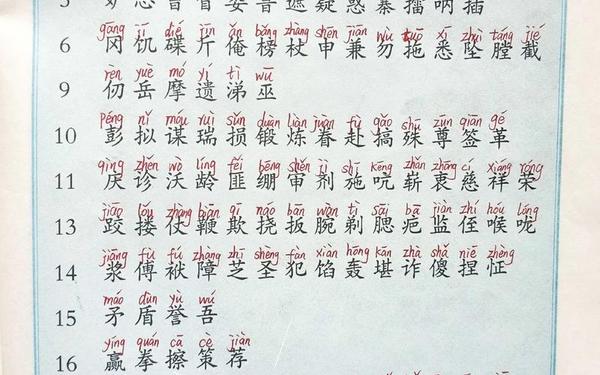 gāng jī dié jīn ǎn bǎng zhàng shēn jiān wù tuō xī zhuì táng jié
6 冈 饥 碟 斤 俺 榜 杖 申 兼 勿 拖 悉 坠 膛 截
rèn yuè mó yí tì wū
9 仞 岳 摩 遗 涕 巫
péng nǐ móu ruì sǔn duàn liàn juàn fù gǎo shū zūn qiān gé
10 彭 拟 谋 瑞 损 锻 炼 眷 赴 搞 殊 尊 签 革
qìng zhěn wò líng fěi bēng shěn jì shī kēng zhǎn zhōng cí xiáng róng
11 庆 诊 沃 龄 匪 绷 审 剂 施 吭 崭 衷 慈 祥 荣
jiāo lǒu zhàng biān qī náo bān wàn tì sāi bā jiān zhí hóu lóng
13 跤 搂 仗 鞭 欺 挠 扳 腕 剃 腮 疤 监 侄 喉 咙
jiāng fù fú zhàng zhī shèng fàn xiàn hōng kān zhà shǎ niē zhèng
14 浆 傅 袱 障 芝 圣 犯 馅 轰 堪 诈 傻 捏 怔
máo dùn yù wú
15 矛 盾 誉 吾
yíng quán cā cè jiàn
16 赢 拳 擦 策 荐